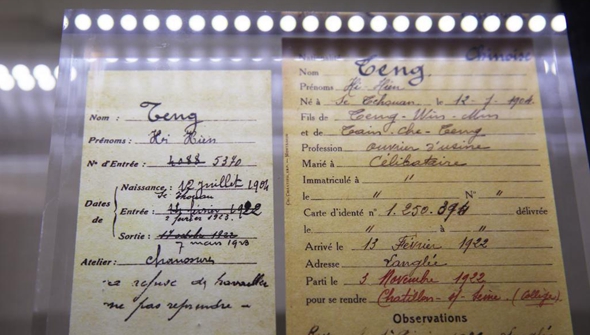 Nom : Teng
Prénoms : Hi Hien
N° d'Entrée : 4088 5370
Naissance : 12 juillet 1904
Se Tchouan
Dates de
Entrée : 14 février 1922
2 février 1923.
Sortie : 17 octobre 1922
7 mars 1923
Atelier : chaussure
refuse de travailler
ne pas reprendre —
Chinoise
Nom Teng.
Prénoms Hi Hien
Né à Se Tchouan, le 12-7-1904
Fils de Teng-Wen-Min
et de Tam-che-Teng
Profession ouvrier d'usine
Marié à Célibataire
Immatriculé à "
le " N° "
Carte d'identé n° 1.250.394 délivrée
le " à "
Arrivé le 13 Février 1922
Adresse Langlée
Parti le 3 Novembre 1922
pour se rendre Chatillon-s/-Seine (Collège)
Observations